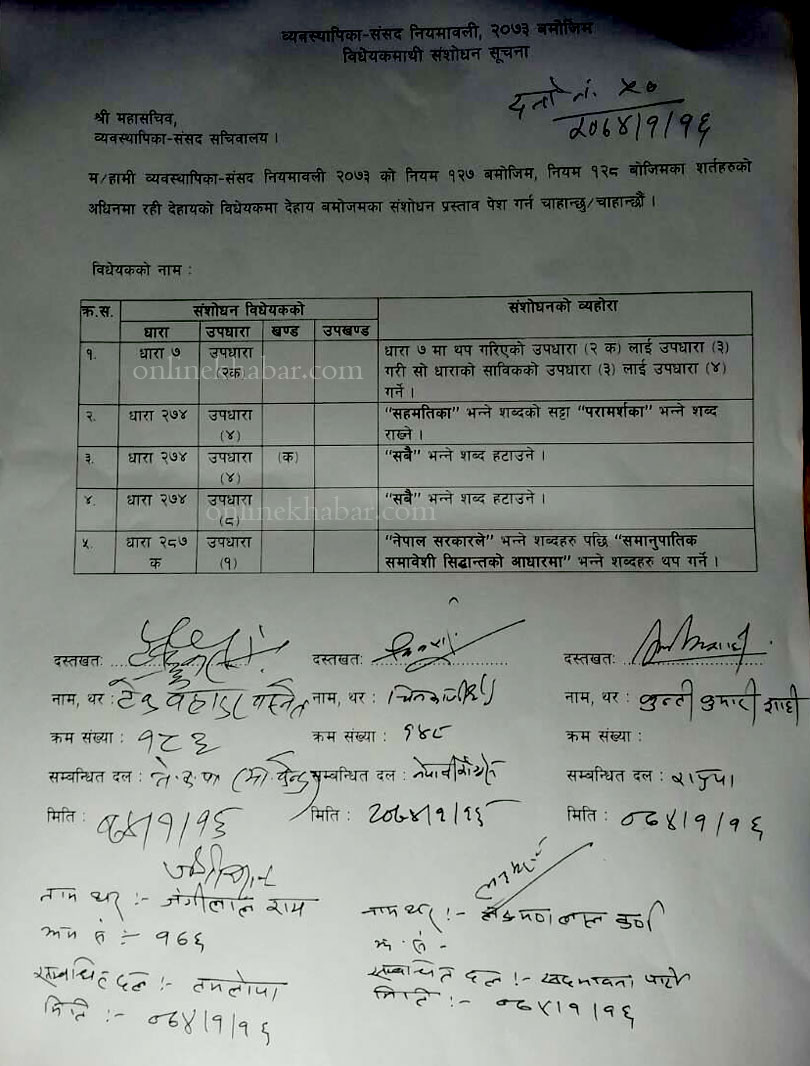 व्यवस्थापिका-संसद नियमावली, २०७३ बमोजिम
विधेयकमाथी संशोधन सूचना
दर्ता नं. ५७
२०७४/१/१६
श्री महासचिव,
व्यवस्थापिका-संसद सचिवालय ।
म/हामी व्यवस्थापिका-संसद नियमावली २०७३ को नियम १२७ बमोजिम, नियम १२८ बोजिमका शर्तहरुको
अधिनमा रही देहायको विधेयकमा देहाय बमोजमका संशोधन प्रस्ताव पेश गर्न चाहान्छु/चाहान्छौं ।
विधेयकको नाम :
क्र.स. संशोधन विधेयकको संशोधनको व्यहोरा
धारा उपधारा खण्ड उपखण्ड
१. धारा ७ उपधारा धारा ७ मा थप गरिएको उपधारा (२ क) लाई उपधारा (३)
onlinekhabar.com
२क गरी सो धाराको साविकको उपधारा (३) लाई उपधारा (४)
गर्ने ।
२. धारा २७४ उपधारा "सहमतिका" भन्ने शब्दको सट्टा "परामर्शका" भन्ने शब्द
(४) राख्ने ।
३. धारा २७४ उपधारा (क) "सबै" भन्ने शब्द हटाउने ।
(४)
४. धारा २७४ उपधारा "सबै" भन्ने शब्द हटाउने ।
(८)
onlinekhabar.com
५. धारा २८७ उपधारा "नेपाल सरकारले" भन्ने शब्दहरु पछि "समानुपातिक
क (१) समावेशी सिद्धान्तको आधारमा" भन्ने शब्दहरु थप गर्ने ।
दस्तखतः दस्तखतः दस्तखतः
नाम, थर : टेक बहादुर बस्नेत नाम, थर : नाम, थर : कुन्ती कुमारी शाही
क्रम संख्या : १८६ क्रम संख्या : १४८ क्रम संख्या :
सम्बन्धित दल : सम्बन्धित दल : सम्बन्धित दल : राप्रपा
मिति : ०७४/१/१६ मिति : २०७४/१/१६ मिति : ०७४/१/१६
नाम थर :- जंगीलाल राय नाम थर :- लक्ष्मण लाल कर्ण
क्रम सं :- १७६ क्र. सं -
सम्बन्धित दल :- तमलोपा सम्बन्धित दल :- सदभावना पार्टी
मिति :- ०७४/१/१६ मिति :- ०७४/१/१६